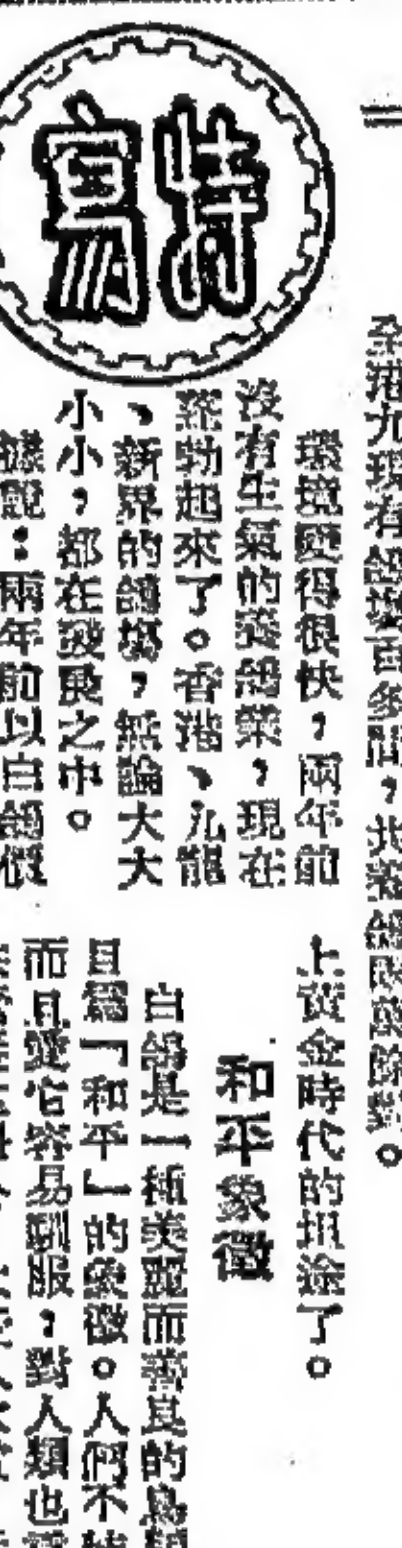 特寫
全港九現有鴿塲百多間，共養鴿萬餘對。
環境變得很快，兩年前
沒有生氣的養鴿業，現在
蓬勃起來了。香港、九龍
、新界的鴿塲，無論大大
小小，都在發展之中。
據說：兩年前以白鴿價
上黃金時代的坦途了。
和平象徵
白鴿是一種美麗而善良的鳥
目爲「和平」的象徵。人們不
而且愛它容易馴服，對人類也